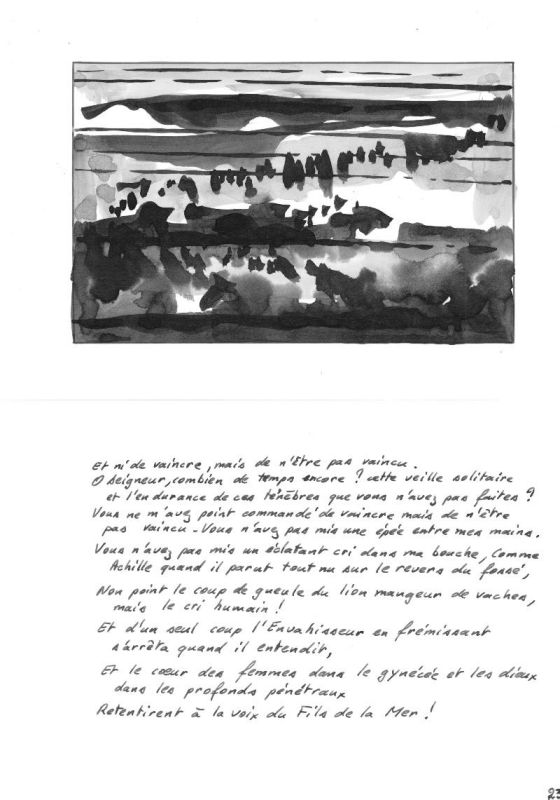 Et ni de vaincre, mais de n'être pas vaincu.
O Seigneur, combien de temps encore ? cette veille solitaire
et l'endurance de ces ténèbres que vous n'avez pas faites ?
Vous ne m'avez point commandé de vaincre mais de n'être
pas vaincu - Vous n'avez pas mis une épée entre mes mains.
Vous n'avez pas mis un éclatant cri dans ma bouche, comme
Achille quand il parut tout nu sur le revers du fossé,
Non point le coup de gueule du lion mangeur de vaches,
mais le cri humain !
Et d'un seul coup l'Envahisseur en frémissant
s'arrêta quand il entendit,
Et le cœur des femmes dans le gynécée et les dieux
dans les profonds pénétraux
Retentirent à la voix du Fils de la Mer !
23